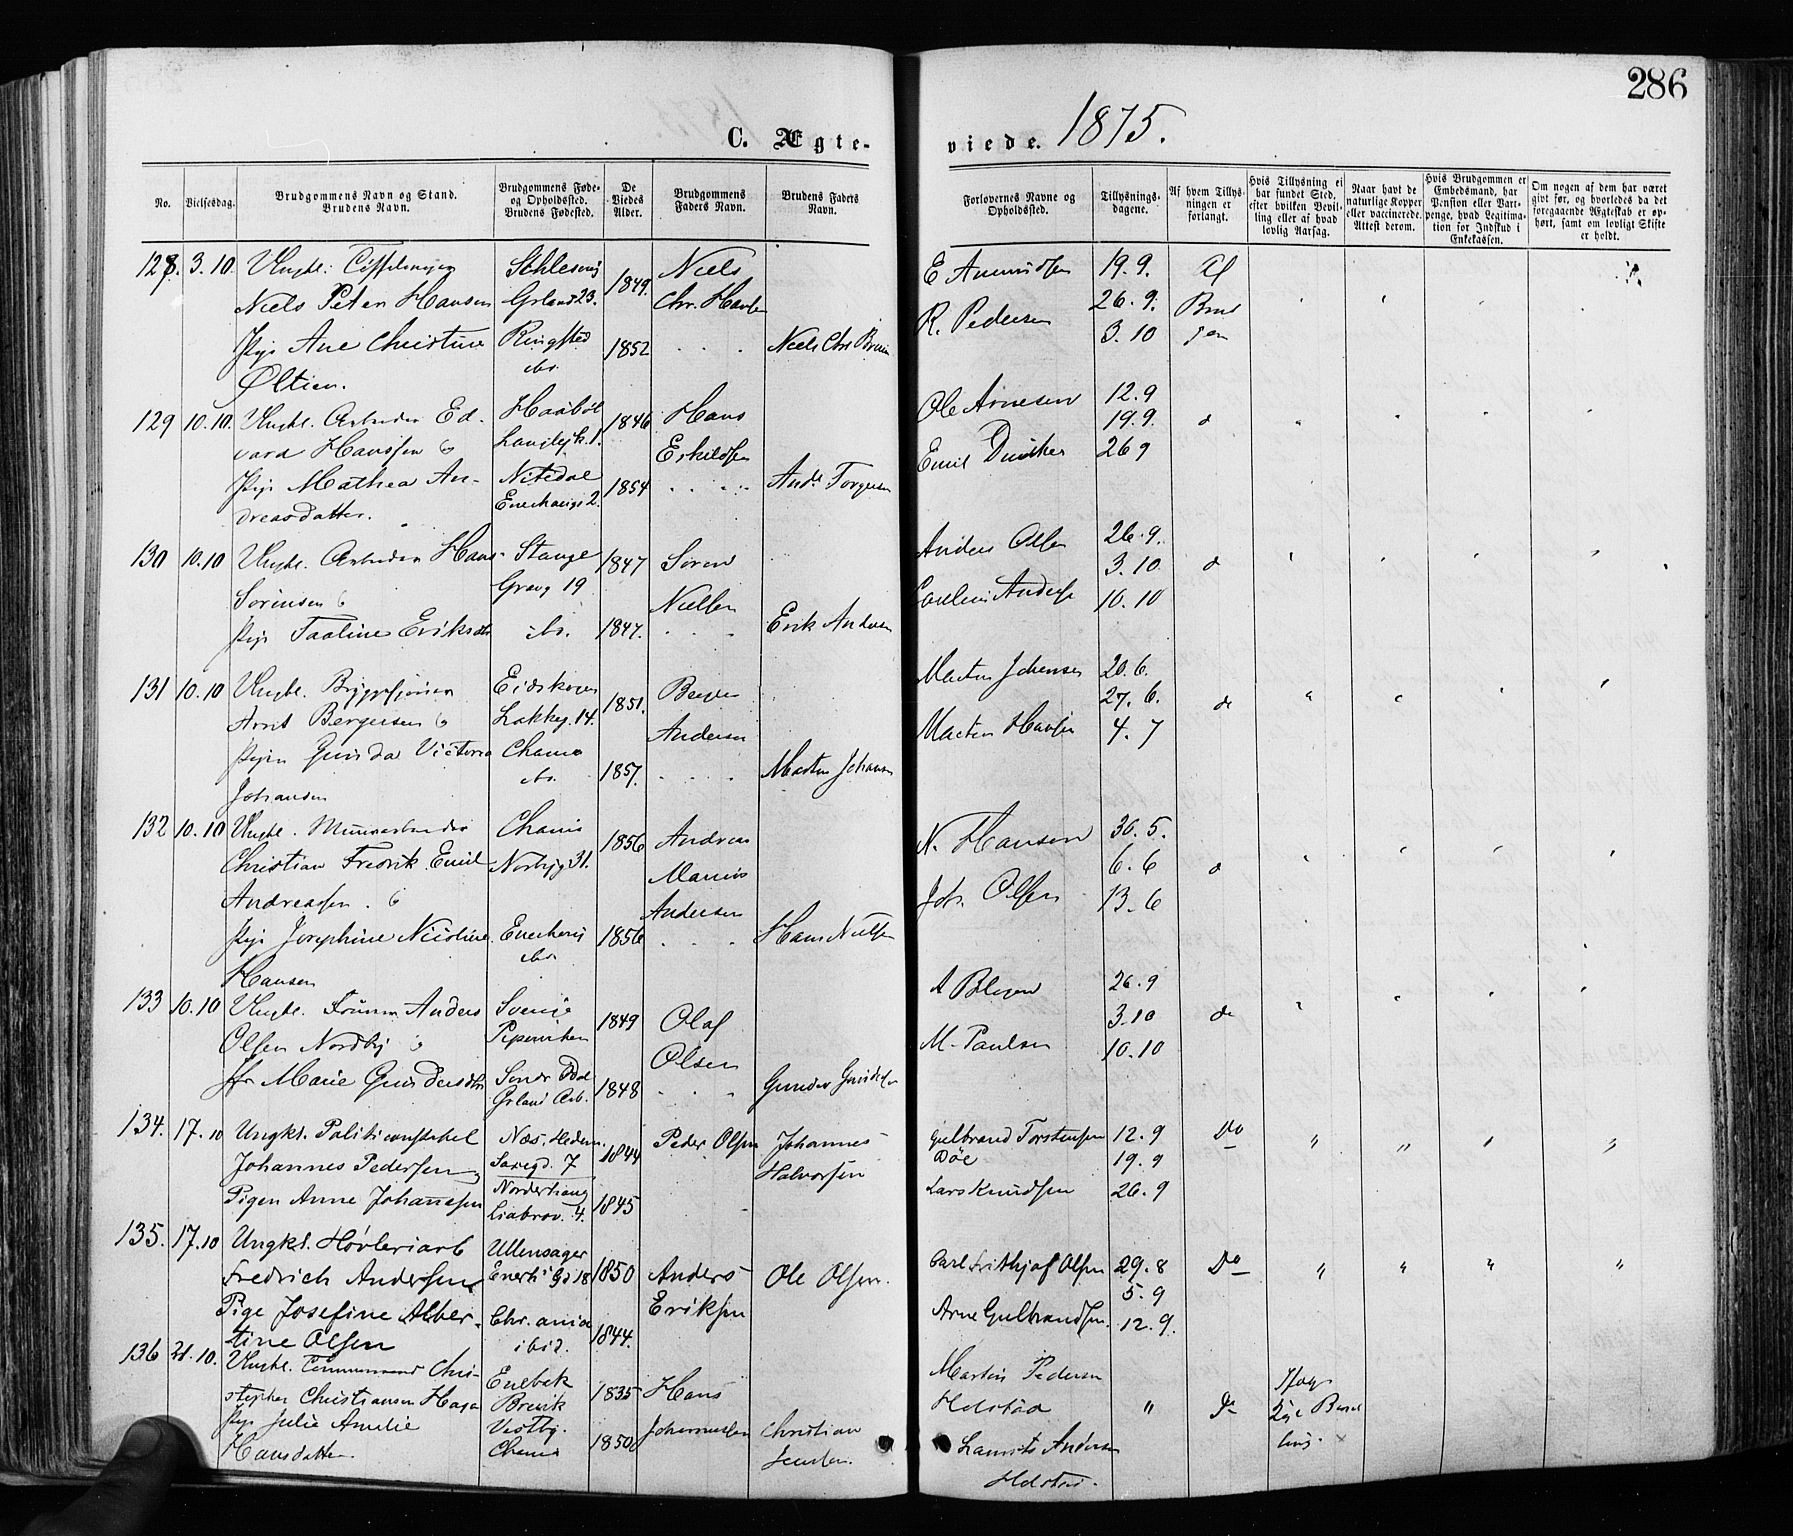 286
C. Ægte-
viede. 1875.
No.
Vielsesdag.
Brudgommens Navn og Stand.
Brudens Navn.
Brudgommens Føde-
og Opholdssted.
Brudens Fødested.
De
Viedes
Alder.
Brudgommens
Faders Navn.
Brudens Faders
Navn.
Forlovernes Navne og
Opholdssted.
Tillysnings-
dagene.
Af hvem Tillys-
ningen er
forlangt.
Hvis Tillysning ei
har fundet Sted,
efter hvilken Bevil-
ling eller af hvad
lovlig Aarsag.
Naar havt de
naturlige Kopper
eller vaccinerede.
Attest derom.
Hvis Brudgommen er
Embedsmand, har
Pension eller Vart-
penge, hvad Legitima-
tion for Indskud i
Enkekassen.
Om nogen af dem har været
givt før, og hvorledes da det
foregaaende Ægteskab er op-
hørt, samt om lovligt Skifte
er holdt.
128. 3.10. Ungkl.
Niels Peter Hansen
Pige Ane Christine
Øltien.
Schlesvig
Grland 23.
Ringsted
ibd.
1849.
1852
Niels
Chr. Hansen
Niels Chr.
E Amundsen
R. Pedersen
19.9.
26.9.
3.10
Af
Brud
gom
129 10.10. Ungkl. Arbeider Ed-
vard Hanssen
Pige Mathea An-
dreasdatter.
Nitedal
1846
1854
Hans
Eskildsen
Ands Torgersen
Ole Arnesen
Emil
12.9
19.9.
26 9
do
130 10.10 Ungkl. Arbeider Hans
Sørensen
Pige Taaline Eriksdtr
Stange
Gravg 19
ibd.
1847
1847.
Søren
Nielsen
Erik Andersen
Anders Olsen
Anders
26.9.
3.10.
10.10
do
131 10.10 Ungkl.
Arnt Bergersen
Pigen Gunda Victoria
Johansen
Eidskogen
Lakkeg. 14.
Chania
ibd.
1851.
1857.
Berger
Andersen
Martin Johansen
Martin Johansen
Martin Hansen
20.6.
27.6.
4.7
do
132 10.10 Ungkl. Murarbeider
Christian Fredrik Emil
Andreassen.
Pige Josephine Nicoline
Hansen
Chania
Norbyg 31.
Enerhaug
ibd.
1856
1856
Andreas
Marius
Andersen
Hans Nielsen
N. Hansen
Joh. Olsen
30.5.
6.6
13.6
do
133 10.10 Ungkl. Tømm Anders
Olsen Nordby
Pige Marie Gundersdtr
Sverige
Pipervichen
Søndr Odal
Grland Arb.
1849
1848
Olaf
Olsen
Gunder Gundersen
M. Paulsen
26.9
3.10
10.10
do
134. 17.10 Ungkl. Politiconstabel
Johannes Pedersen
Pigen Anne Johannesen
Næs. Hedem.
7
Norderhaug
Liabrov. 4.
1844
1845
Peder Olsen
Johannes
Halvorsen
Gulbrand Torstensen
Døe
Lars Knudsen
12.9
19.9
26.9
Do
135. 17.10 Ungkl. Høvleriarb
Fredrich Andersen
Pige Josefine Alber-
tine Olsen
Ullensager
Enerhg 18
Chr. ania
ibid.
1850
1844.
Anders
Eriksen
Ole Olsen.
Carl Frithjof Olsen
Arne Gulbrandsen.
29.8
5.9
12.9.
Do
136 21.10. Ungkl. Tømmermand Chri-
stopher Christiansen Haga
Pige Julie Amelie
Hansdatter
Enebak
Brevik
Vestby.
Chania
1835
1850
Hans
Johannessen
Christian
Jensen.
Martin Pedersen
Holstad
Andersen
Holstad.
Do